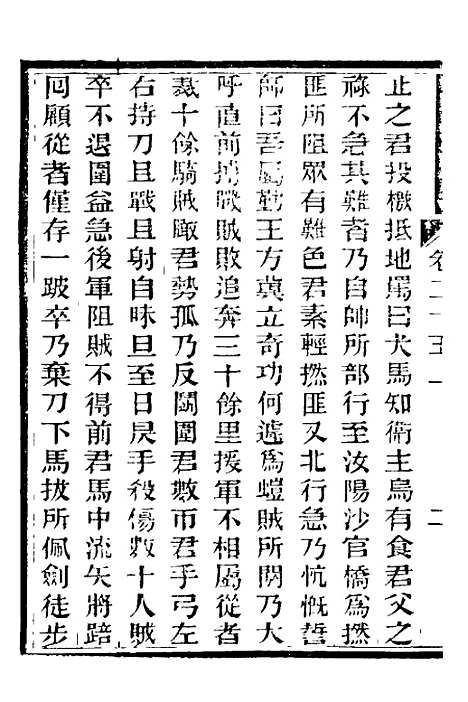 卷二十五
二
止之君投檄抵地罵曰犬馬知衛主烏有食君父之
祿不急其難者乃自帥所部行至汝陽沙官橋爲撚
匪所阻眾有難色君素輕撚匪又北行急乃忼慨誓
師曰吾屬勤王方冀立奇功何遽爲螘賊所閡乃大
呼直前搏戰賊敗追奔三十餘里援軍不相屬從者
裁十餘騎賊瞰君勢孤乃反鬭圍君數帀君手弓左
右持刀且戰且射自昧旦至日昃手殺傷數十人賊
卒不退圍益急後軍阻賊不得前君馬中流矢將踣
囘顧從者僅存一跛卒乃棄刀下馬拔所佩劍徒步